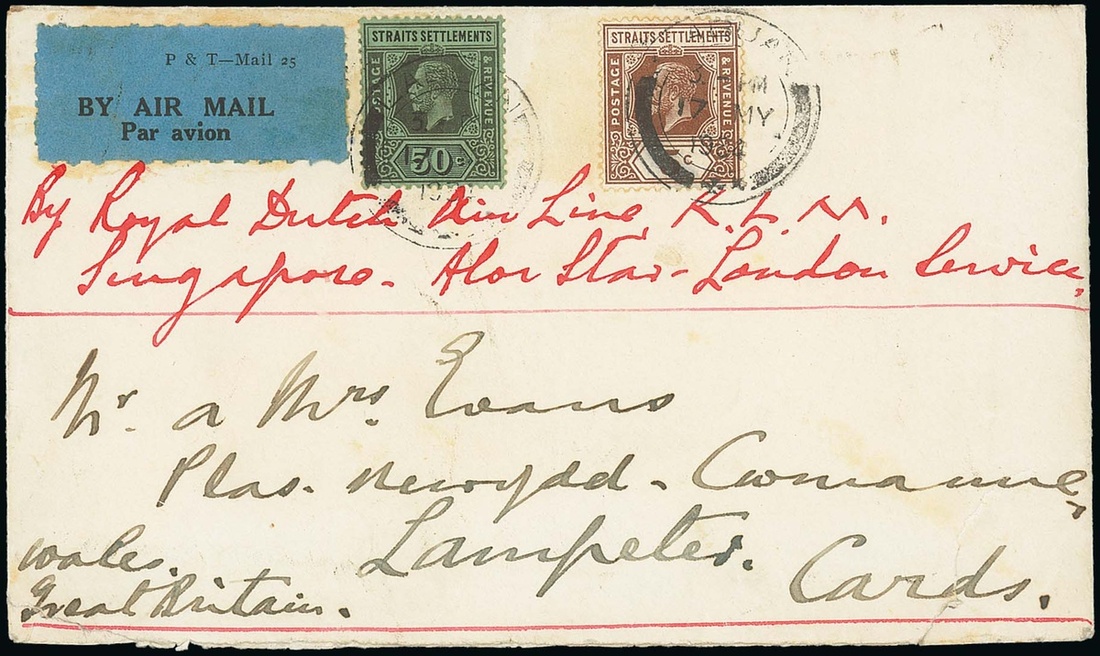 P & T—Mail 25
BY AIR MAIL
Par avion
STRAITS SETTLEMENTS
POSTAGE
& REVENUE
50 c
STRAITS SETTLEMENTS
POSTAGE
& REVENUE
PM
17 MY
By Royal Dutch Air Line K.L.M.
Singapore - Alor Star - London Service,
Mr & Mrs Evans
Plas. Newydd - Cwmanne,
Lampeter.
Cards.
Wales.
Great Britain.